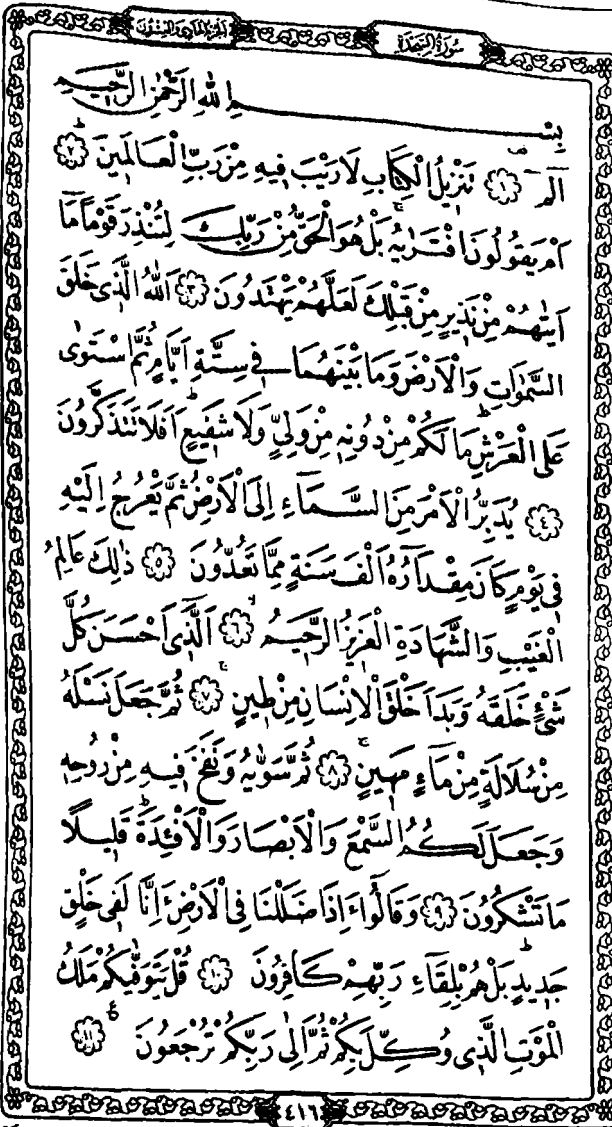 سُورَةُ السَّجْدَةِ
اَلْجُزْءُ الْحَادِي وَالْعِشْرُونَ
بِسْمِ اللّٰهِ الرَّحْمٰنِ الرَّحِيمِ
الٓمٓ ﴿١﴾ تَنْزِيلُ الْكِتَابِ لَا رَيْبَ فِيهِ مِنْ رَبِّ الْعَالَمِينَ ﴿٢﴾
اَمْ يَقُولُونَ افْتَرٰيهُ بَلْ هُوَ الْحَقُّ مِنْ رَبِّكَ لِتُنْذِرَ قَوْمًا مَٓا
اَتٰيهُمْ مِنْ نَذِيرٍ مِنْ قَبْلِكَ لَعَلَّهُمْ يَهْتَدُونَ ﴿٣﴾ اَللّٰهُ الَّذِي خَلَقَ
السَّمٰوَاتِ وَالْاَرْضَ وَمَا بَيْنَهُمَا فِي سِتَّةِ اَيَّامٍ ثُمَّ اسْتَوٰى
عَلَى الْعَرْشِ مَا لَكُمْ مِنْ دُونِهِ مِنْ وَلِيٍّ وَلَا شَفِيعٍ اَفَلَا تَتَذَكَّرُونَ
﴿٤﴾ يُدَبِّرُ الْاَمْرَ مِنَ السَّمَٓاءِ اِلَى الْاَرْضِ ثُمَّ يَعْرُجُ اِلَيْهِ
فِي يَوْمٍ كَانَ مِقْدَارُهُٓ اَلْفَ سَنَةٍ مِمَّا تَعُدُّونَ ﴿٥﴾ ذٰلِكَ عَالِمُ
الْغَيْبِ وَالشَّهَادَةِ الْعَزِيزُ الرَّحِيمُ ﴿٦﴾ اَلَّذِٓي اَحْسَنَ كُلَّ
شَيْءٍ خَلَقَهُ وَبَدَاَ خَلْقَ الْاِنْسَانِ مِنْ طِينٍ ﴿٧﴾ ثُمَّ جَعَلَ نَسْلَهُ
مِنْ سُلَالَةٍ مِنْ مَٓاءٍ مَهِينٍ ﴿٨﴾ ثُمَّ سَوّٰيهُ وَنَفَخَ فِيهِ مِنْ رُوحِهِ
وَجَعَلَ لَكُمُ السَّمْعَ وَالْاَبْصَارَ وَالْاَفْئِدَةَ قَلِيلًا
مَا تَشْكُرُونَ ﴿٩﴾ وَقَالُٓوا ءَاِذَا ضَلَلْنَا فِي الْاَرْضِ ءَاِنَّا لَفِي خَلْقٍ
جَدِيدٍ بَلْ هُمْ بِلِقَٓاءِ رَبِّهِمْ كَافِرُونَ ﴿١٠﴾ قُلْ يَتَوَفّٰيكُمْ مَلَكُ
الْمَوْتِ الَّذِي وُكِّلَ بِكُمْ ثُمَّ اِلٰى رَبِّكُمْ تُرْجَعُونَ ﴿١١﴾
٤١٦